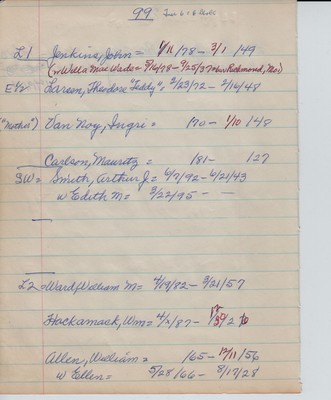 99
L1 Jenkins, John = 9/11/78 - 3/1/49
(w Willa Mae Wade = 5/16/78 - 9/25/37 Richmond, Mo.)
E½ Larsen, Theodore "Teddy" = 3/23/72 - 2/16/48
"Mother") Van Noy, Ingri = 190 - 1/10/48
Carlson, Mauretz = 181 - 127
SW = Smith, Arthur J = 6/7/92 - 4/21/43
w Edith M = 3/22/95 - -
L2 = Ward, William M = 4/19/82 - 3/21/57
Hackamack, Wm = 4/2/87 -
Allen, William = 165 - 12/11/56
w Ellen = 5/28/66 - 8/17/28